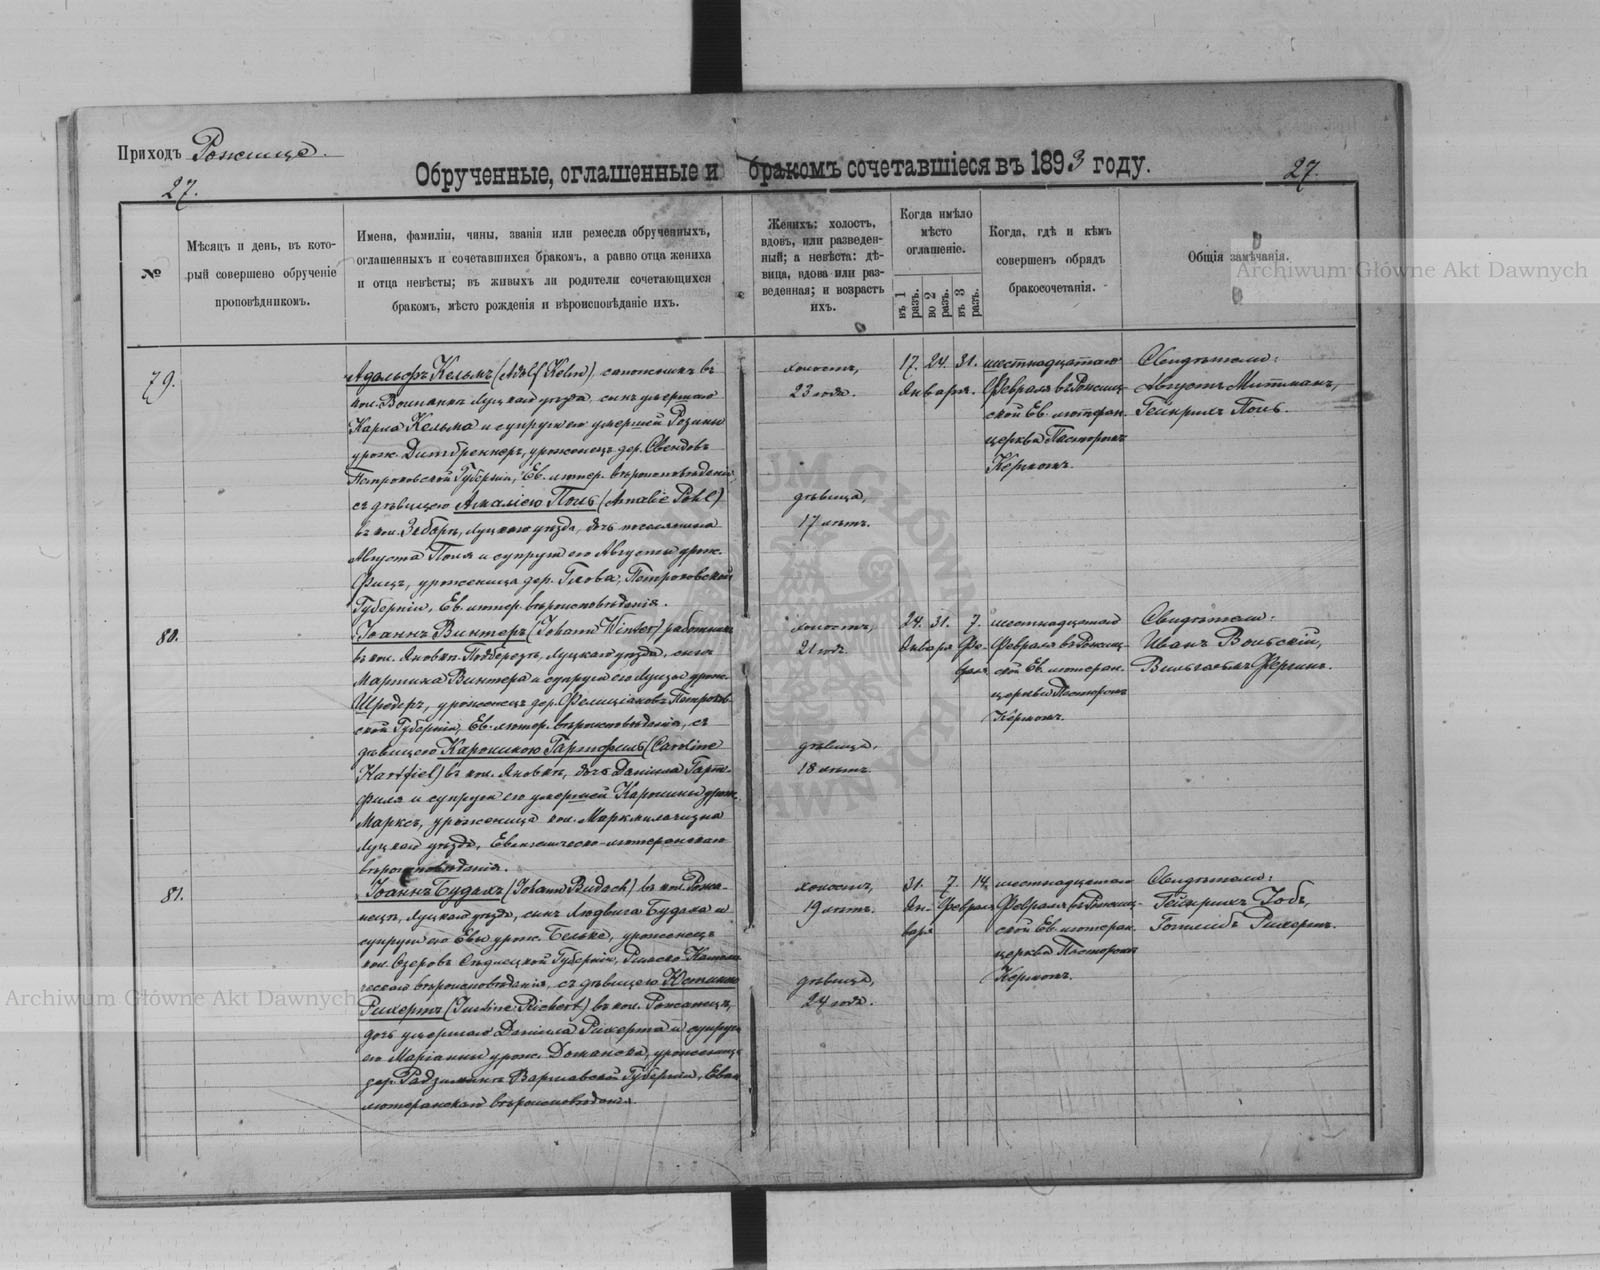 Приходъ Рожище.
Обрученные, оглашенные и бракомъ сочетавшіеся въ 1893 году.
27.
27.
№
Мѣсяцъ и день, въ кото-
рый совершено обрученіе
проповѣдникомъ.
Имена, фамиліи, чины, званія или ремесла обрученныхъ,
оглашенныхъ и сочетавшихся бракомъ, а равно отца жениха
и отца невѣсты; въ живыхъ ли родители сочетающихся
бракомъ, мѣсто рожденія и вѣроисповѣданіе ихъ.
Женихъ: холостъ,
вдовъ, или разведен-
ный; а невѣста: дѣ-
вица, вдова или раз-
веденная; и возрастъ
ихъ.
Когда имѣло
мѣсто
оглашеніе.
въ 1 разъ.
во 2 разъ.
въ 3 разъ.
Когда, гдѣ и кѣмъ
совершенъ обрядъ
бракосочетанія.
Общія замѣчанія.
Archiwum Główne Akt Dawnych
79.
Адольфъ Кельмъ (Adolf Kelm), сапожникъ въ
кол. Луцкаго уѣзда, сынъ умершаго
Карла Кельма и супруги его умершей Розины
урож. Дитбреннеръ, уроженецъ дер. Свендовъ
Петроковской Губерніи, Ев. лютер. вѣроисповѣданія,
съ дѣвицею Амаліею Поль (Amalie Pohl)
въ кол. Луцкаго уѣзда, дочь поселянина
Августа Поля и супруги его Августы урож.
уроженица дер. Петроковской
Губерніи, Ев. лютер. вѣроисповѣданія.
холостъ,
23 года.
дѣвица,
17 лѣтъ.
17. 24. 31.
Января.
шестнадцатаго
Февраля въ Рожищ-
ской Ев. лютеран.
церкви Пасторомъ
Кермомъ.
Свидѣтели:
Августъ Митманъ,
Гейнрихъ Поль.
80.
Іоаннъ Винтеръ (Johann Winter) работникъ
въ кол. Яновка-Подберезь, Луцкаго уѣзда, сынъ
Мартина Винтера и супруги его Луизы урож.
Шредеръ, уроженецъ дер. Фелиціановъ Петроков-
ской Губерніи, Ев. лютер. вѣроисповѣданія, съ
дѣвицею Каролиною Гартфиль (Caroline
Hartfiel) въ кол. Яновкѣ, дочь Даніила Гарт-
филя и супруги его умершей Каролины урож.
Марксъ, уроженица кол.
Луцкаго уѣзда, Евангелическо-лютеранскаго
вѣроисповѣданія.
холостъ,
21 годъ.
дѣвица,
18 лѣтъ.
24. 31. 7.
Января Фе-
враля
шестнадцатаго
Февраля въ Рожищ-
ской Ев. лютеран.
церкви Пасторомъ
Кермомъ.
Свидѣтели:
Иванъ Вольскій,
Вильгельмъ Фергинъ.
81.
Іоаннъ Будахъ (Johann Budach) въ кол. Рожа-
нецъ, Луцкаго уѣзда, сынъ Людвига Будаха и
супруги его Евы урож. Бельке, уроженецъ
кол. Озеровъ Сѣдлецкой Губерніи, Римско-Католи-
ческаго вѣроисповѣданія, съ дѣвицею Юстиною
Рихертъ (Justine Richert) въ кол. Рожанецъ,
дочь умершаго Даніила Рихерта и супруги
его Маріанны урож. Доманска, уроженица
дер. Радзиминъ Варшавской Губерніи, Еван.
лютеранскаго вѣроисповѣдан.
холостъ,
19 лѣтъ.
дѣвица,
24 года.
31. 7. 14.
Ян- Февраля
варя
шестнадцатаго
Февраля въ Рожищ-
ской Ев. лютеран.
церкви Пасторомъ
Кермомъ.
Свидѣтели:
Гейнрихъ Гобъ,
Готлибъ Рихертъ.
Archiwum Główne Akt Dawnych